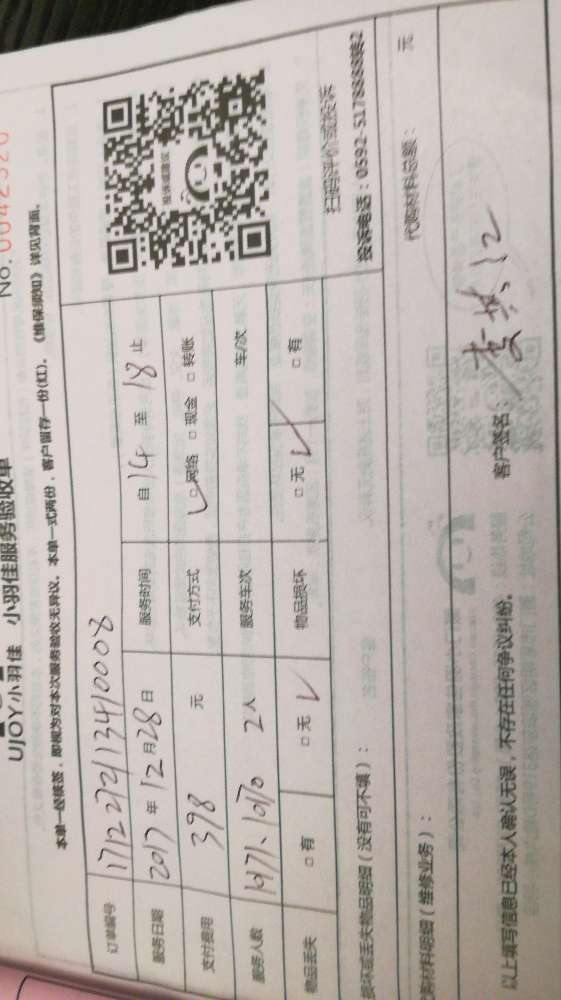 No. 0042520
UJOY小羽佳 小羽佳服务验收单
本单一经接签，即视为对本次服务验收无异议。本单一式两份，客户留存一份(红)。《维保须知》详见背面。
订单编号 171227213410008
服务日期 2017年12月28日 服务时间 自14至18止
支付费用 398 元 支付方式 ☑网络 □现金 □转账
服务人数 1071、1070 2人 服务车次 车/次
物品丢失 □有 □无✓ 物品损坏 □无✓ □有
投诉或建议
扫码评价或投诉
投诉电话：0592-5178888转2
损坏或丢失物品明细（没有可不填）：
购材料明细（维修业务）： 代购材料总额： 元
以上填写信息已经本人确认无误，不存在任何争议纠纷。 客户签名：